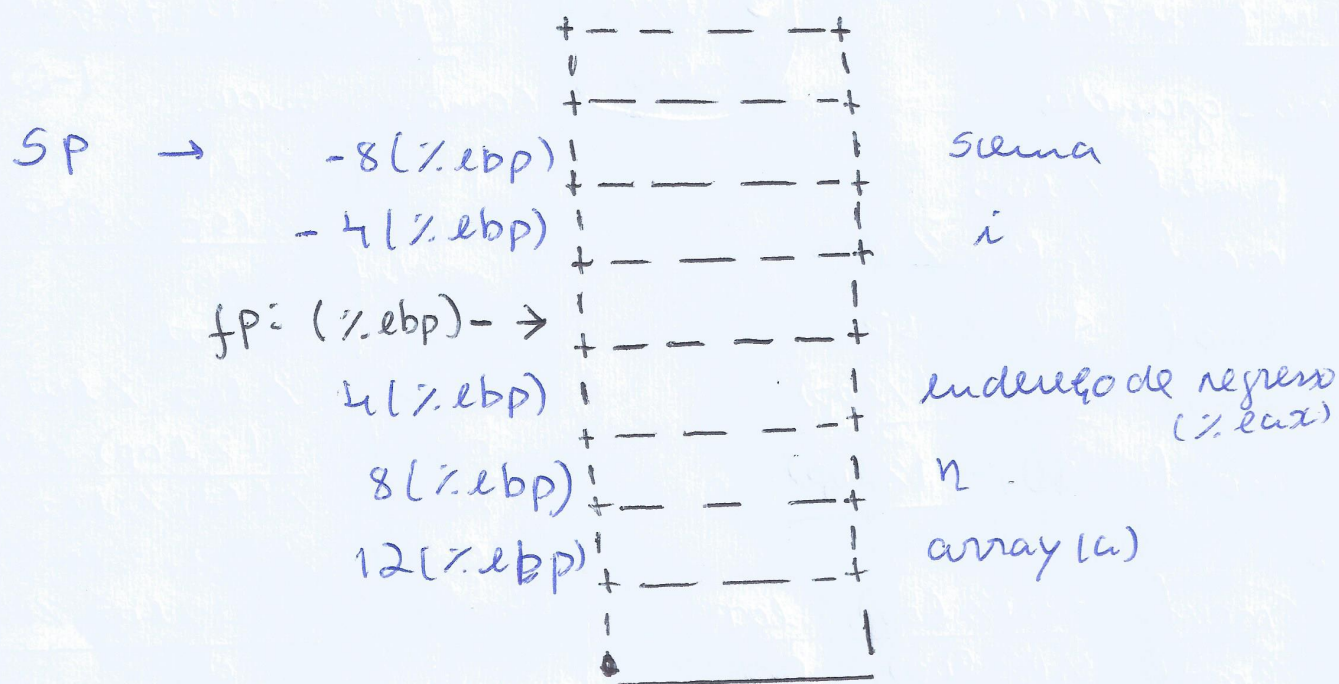 SP → -8(%ebp) soma
-4(%ebp) i
fp: (%ebp) - →
4(%ebp) endereço de regresso
(%eax)
8(%ebp) n.
12(%ebp) array (a)